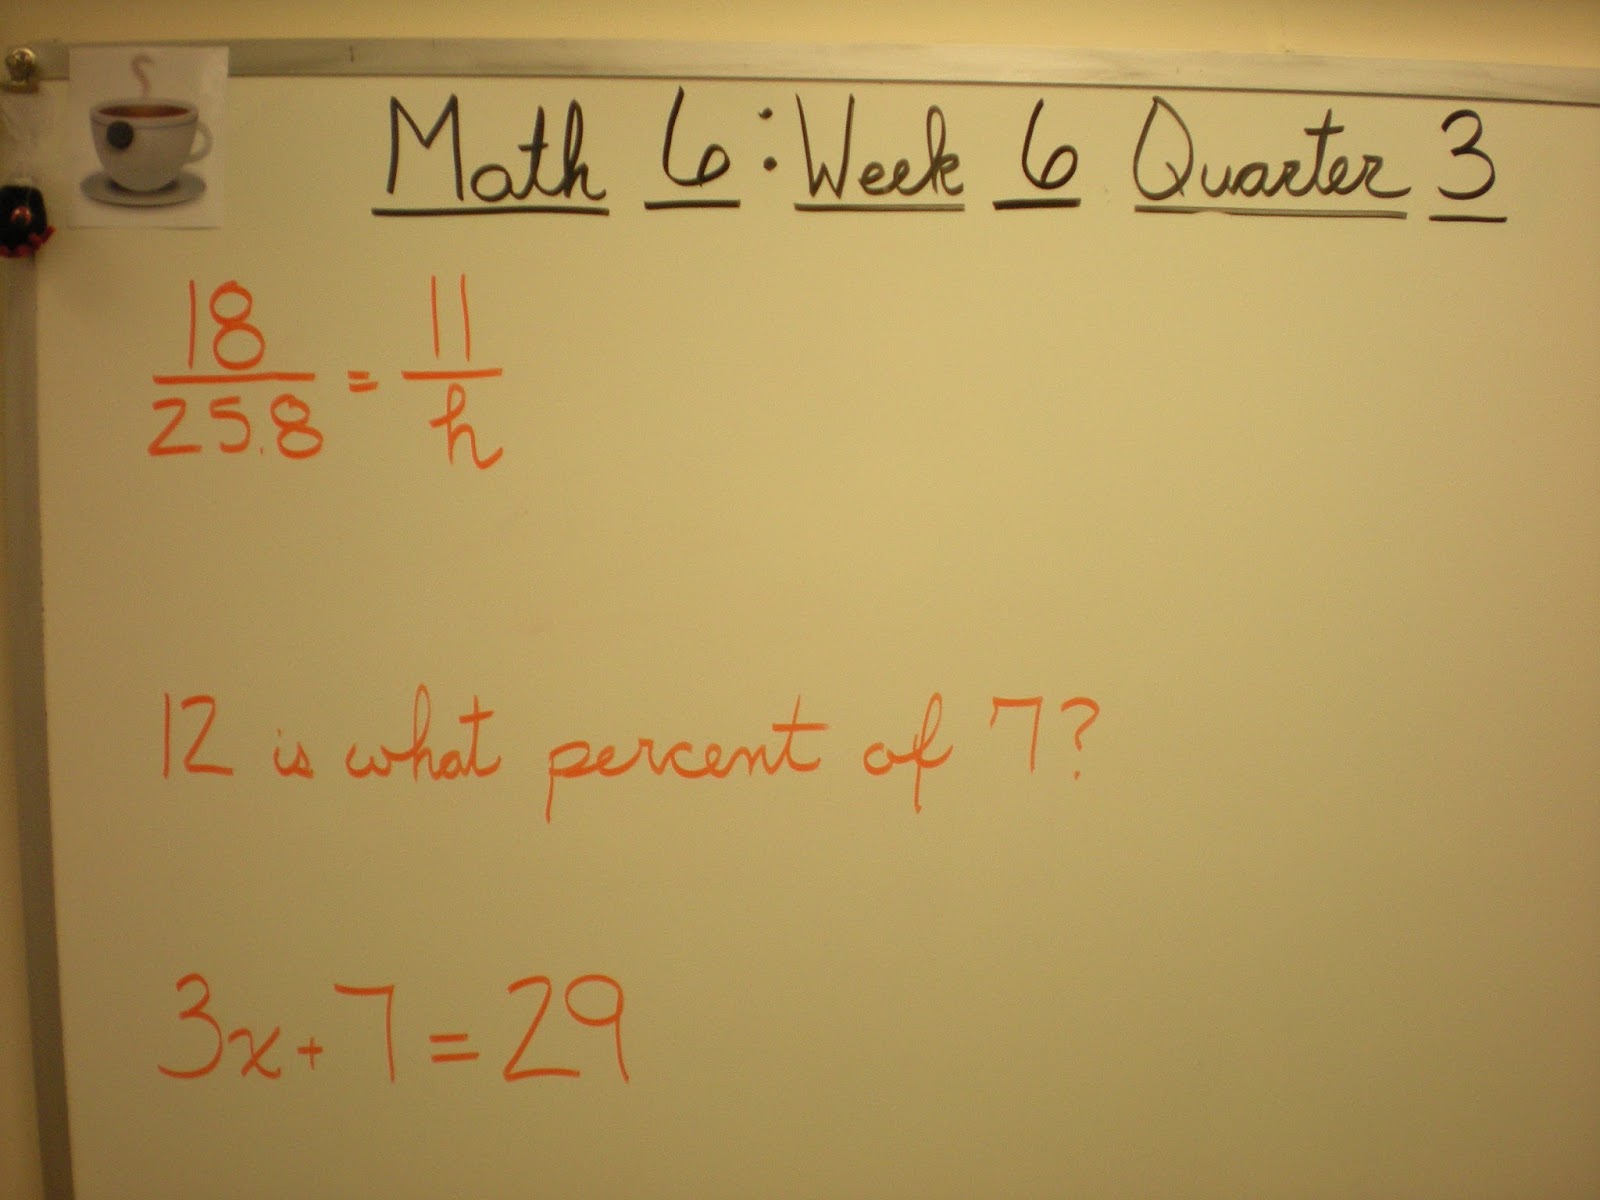 Math 6: Week 6 Quarter 3
18/25.8 = 11/h
12 is what percent of 7?
3x+7=29